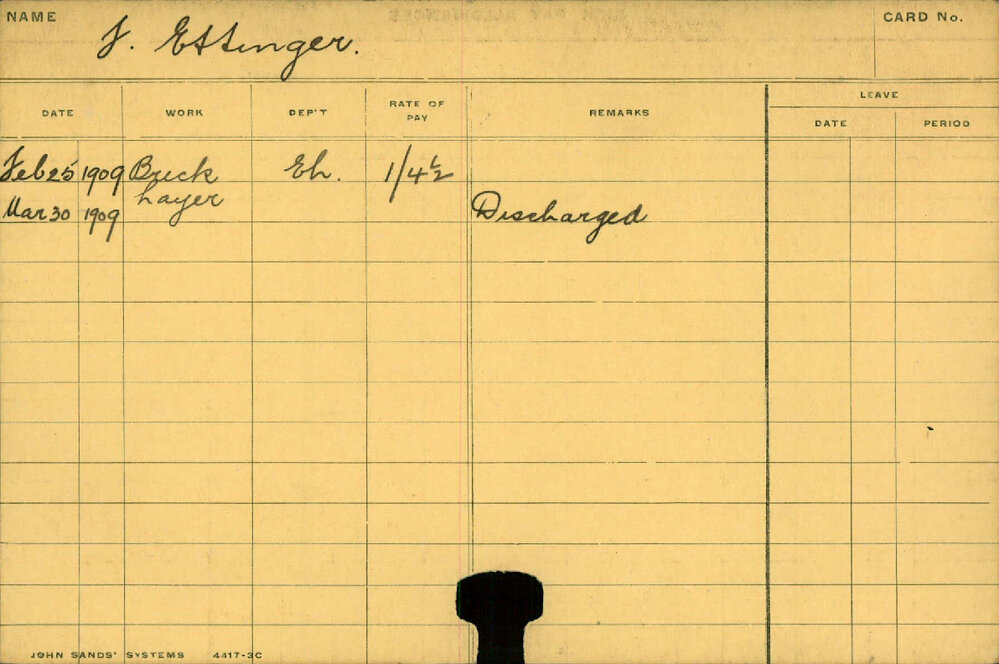 NAME
J. Ettinger.
CARD No.
DATE WORK DEP'T RATE OF PAY REMARKS LEAVE
DATE PERIOD
Feb 25 1909 Brick Eh. 1/4½
Layer
Mar 30 1909 Discharged
JOHN SANDS' SYSTEMS 4417-3C